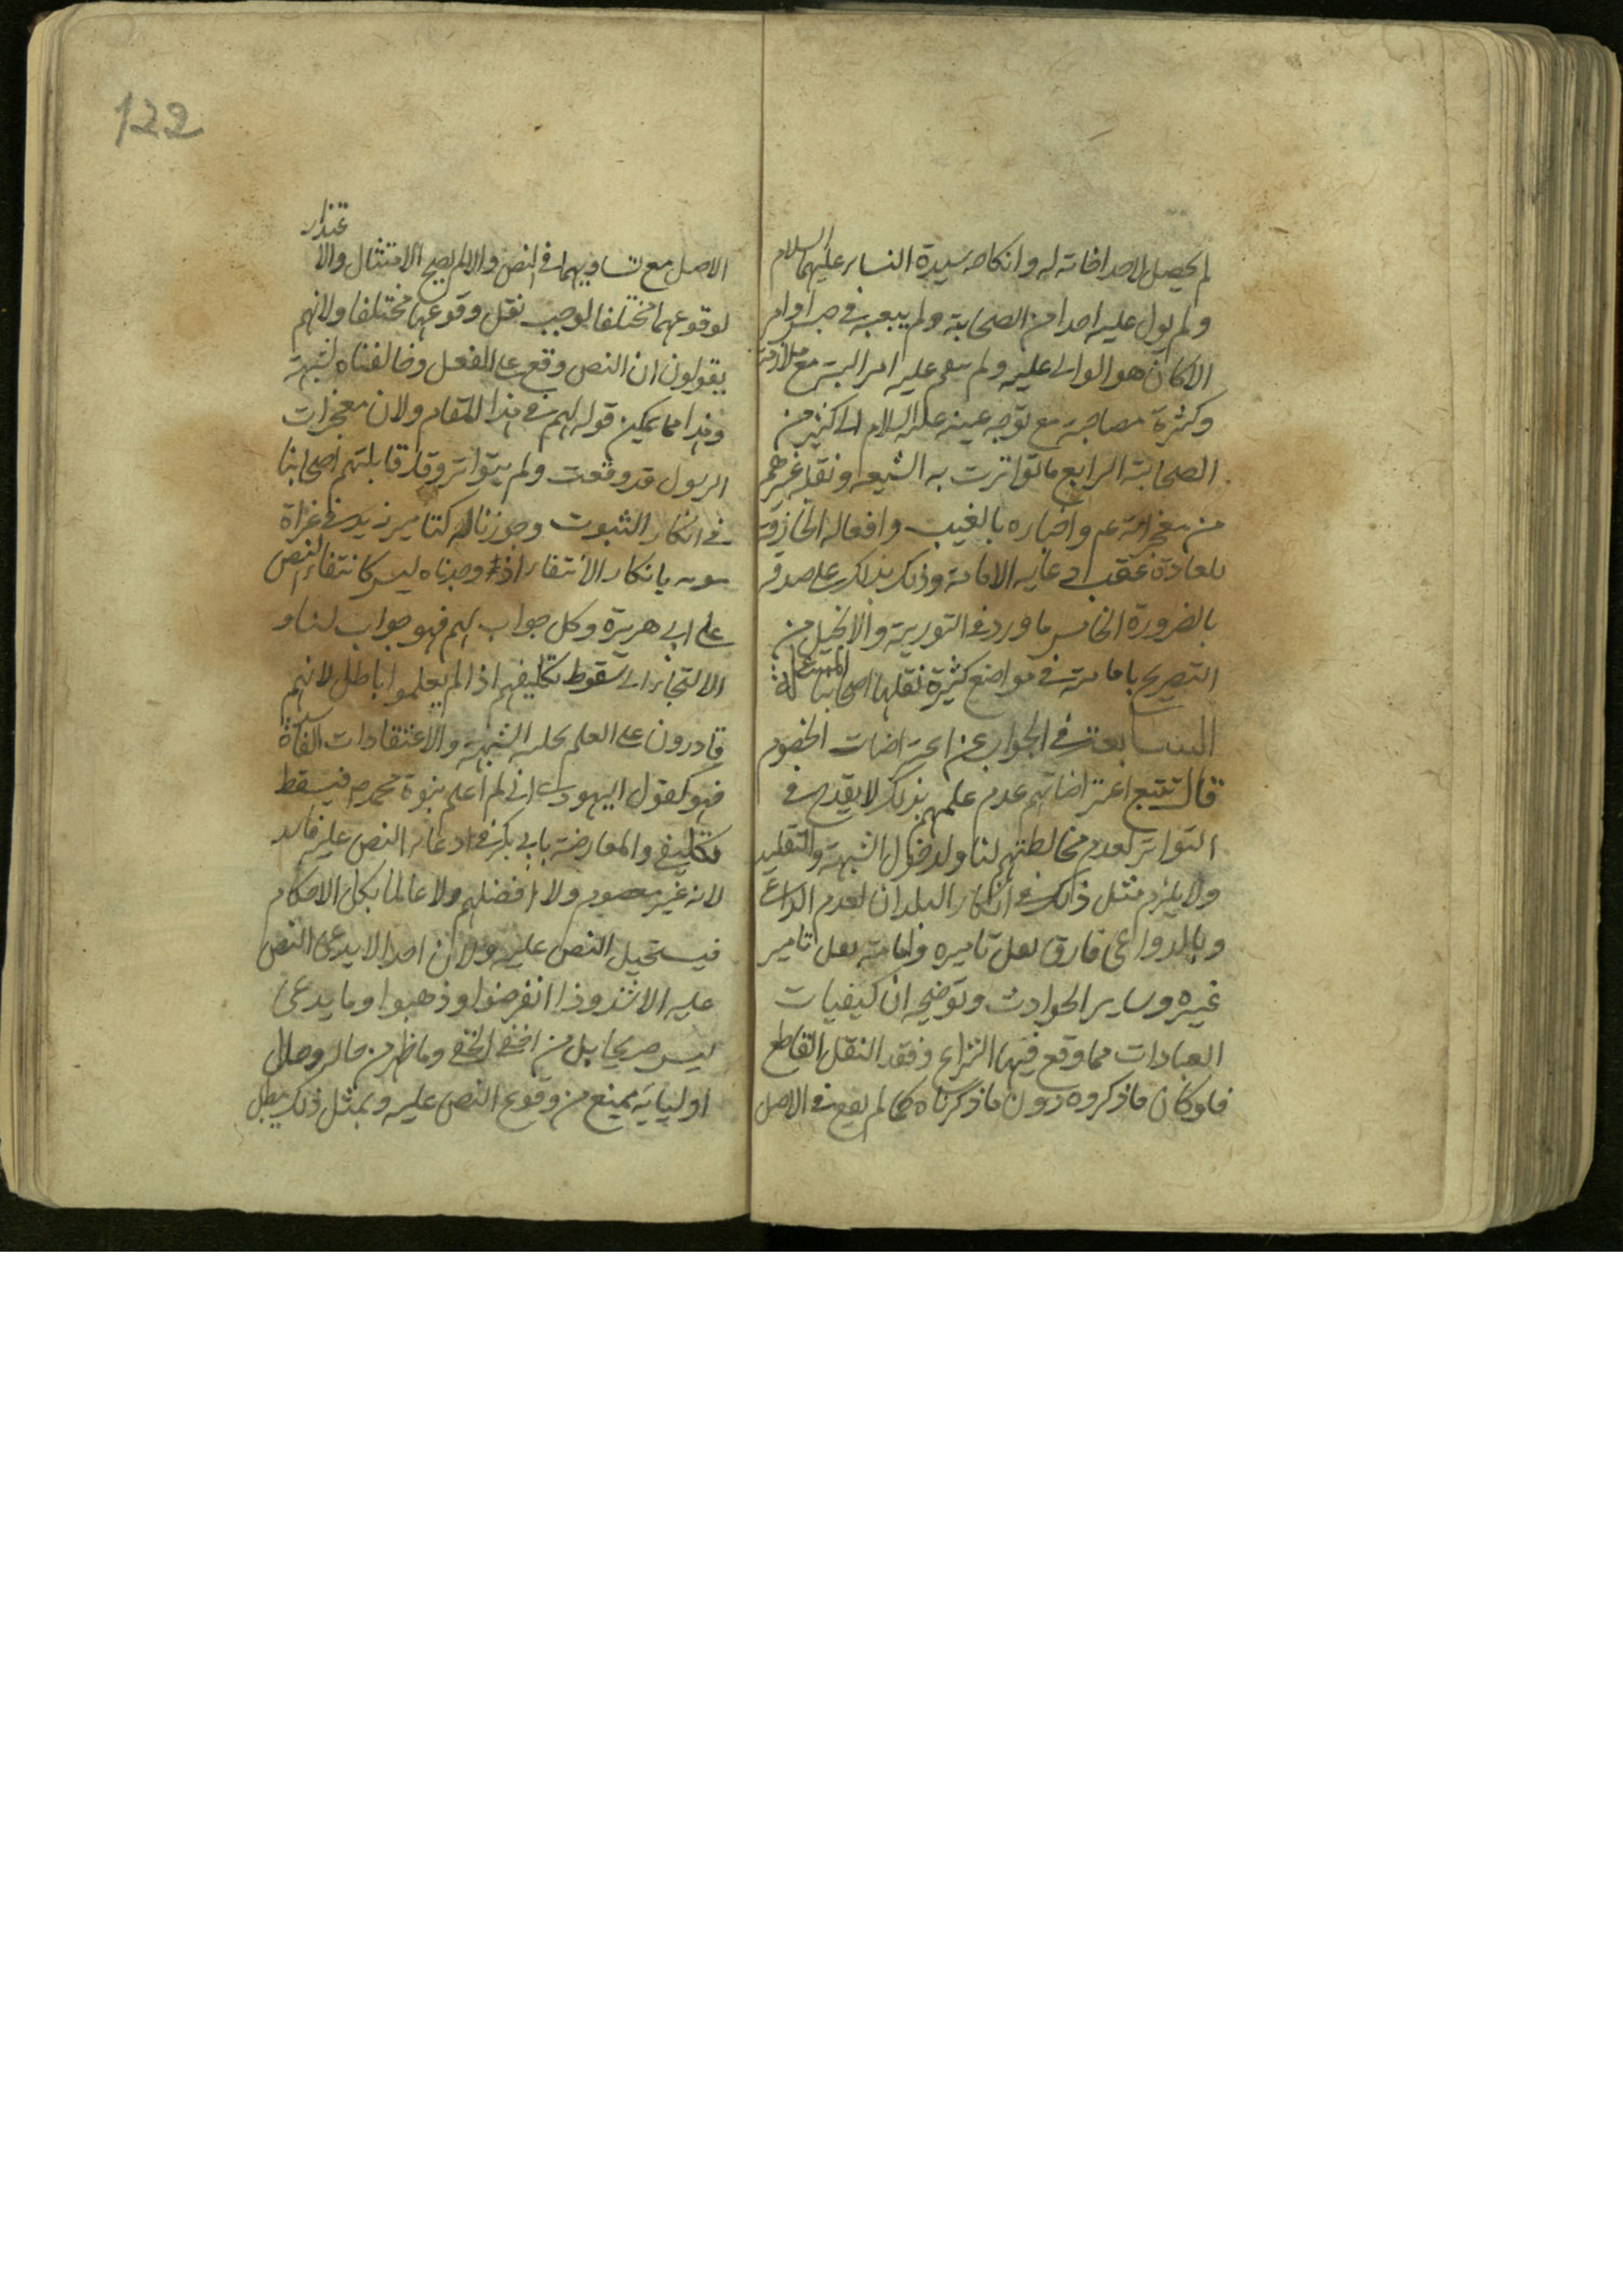 لم يحصل لاحد اخاته له وانكاحه سيدة النساء عليهما السلام
ولم يول عليه احدا من الصحابة ولم يبعثه في جيش او امر
الا كان هو الوالي عليه ولم ينقم عليه امر البتة مع ملازمته
وكثرة مصاحبته مع توجه عيبه عليه السلام الى كثير من
الصحابة الرابع ما تواترت به الشيعة ونقله غيرهم
من معجزاته عم واخباره بالغيب وافعاله الخارقة
للعادة عقيب ادعايه الامامة وذلك يدلك على صدقه
بالضرورة الخامس ما ورد في التورية والانجيل من
التصريح بامامته في مواضع كثيرة نقلها اصحابنا المسئلة
السابعة في الجواب عن اعتراضات الخصوم
قال تتبع اعتراضاتهم عدم علمهم بذلك لا يقدح في
التواتر لعدم مخالطتهم لنا ولدخول الشبهة والتقليد
ولا يلزم مثل ذلك في انكار البلدان لعدم الداعي
وبالدواعي فارق نقل تاميره وامامته نقل تامير
غيره وساير الحوادث وتوضيحه ان كيفيات
العبادات مما وقع فيها النزاع وفقد النقل القاطع
فلو كان ما ذكروه دون ما ذكرناه كما لم يقع في الاصل
122
الاصل مع تساويهما في النص والا لم يصح الامتثال والاعتذار
لوقوعهما مختلفا لوجب نقل وقوعها مختلفا ولانهم
يقولون ان النص وقع على الفعل وخالفناه لشبهة
وهذا مما يمكن قوله لهم في هذا المقام ولان معجزات
الرسول قد وقعت ولم يتواتر وقد قابلتهم اصحابنا
في انكار الثبوت وجوزنا له كتامير زيد في غزاة
موته بانكار الانتفاء اذ وجدناه ليس كانتفاء النص
على ابي هريرة وكل جواب لهم فهو جواب لنا و
الالتجاء الى سقوط تكليفهم اذا لم يعلموا باطل لانهم
قادرون على العلم بحل الشبهة والاعتقادات الفاسدة
فهو كقول اليهودي اني لم اعلم بنبوة محمد ص فيسقط
تكليفي والمعارضة بابي بكر في ادعاء النص عليه فاسد
لانه غير معصوم ولا افضلهم ولا عالما بكل الاحكام
فيستحيل النص عليه ولان احدا لا يدعي النص
عليه الا شذوذا انقرضوا وذهبوا وما يدعى
ليس صريحا بل من اخفى الخفي وما ظهر من حاله وحال
اوليايه يمنع من وقوع النص عليه وبمثل ذلك يبطل